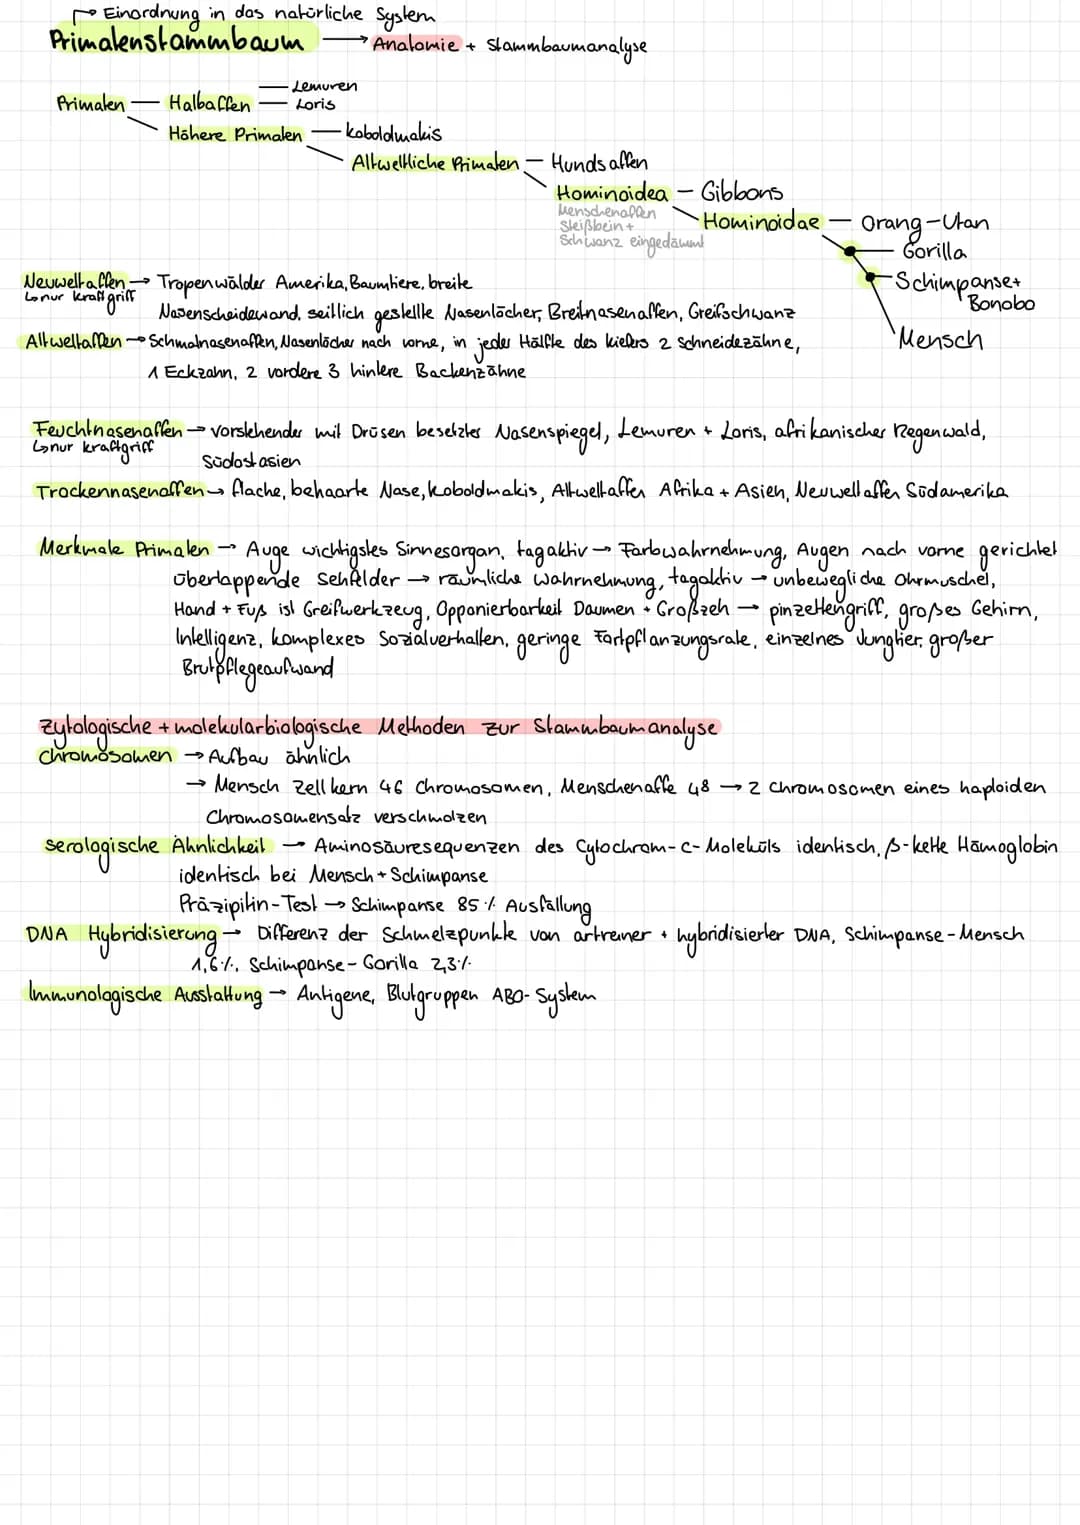 Einordnung in das natürliche System
Primatenstammbaum → Anatomie + Stammbaumanalyse
Lemuren
Primaten — Halbaffen — Loris
Höhere Primaten — Koboldmakis
Altweltliche Primaten — Hundsaffen
Hominoidea — Gibbons
Menschenaffen
Steißbein +
Schwanz eingedämmt
Hominoidae — Orang-Utan
Gorilla
Schimpanse +
Bonobo
Mensch
Neuweltaffen → Tropenwälder Amerika, Baumtiere, breite
↳ nur Kraftgriff
Nasenscheidewand, seitlich gestellte Nasenlöcher, Breitnasenaffen, Greifschwanz
Altweltaffen → Schmalnasenaffen, Nasenlöcher nach vorne, in jeder Hälfte des Kiefers 2 Schneidezähne,
1 Eckzahn, 2 vordere 3 hintere Backenzähne
Feuchtnasenaffen → vorstehender mit Drüsen besetzter Nasenspiegel, Lemuren + Loris, afrikanischer Regenwald,
↳ nur Kraftgriff
Südostasien
Trockennasenaffen → flache, behaarte Nase, Koboldmakis, Altweltaffen Afrika + Asien, Neuweltaffen Südamerika
Merkmale Primaten → Auge wichtigstes Sinnesorgan, tagaktiv → Farbwahrnehmung, Augen nach vorne gerichtet
überlappende Sehfelder → räumliche Wahrnehmung, tagaktiv → unbewegliche Ohrmuschel,
Hand + Fuß ist Greifwerkzeug, Opponierbarkeit Daumen + Großzeh → pinzettengriff, großes Gehirn,
Intelligenz, komplexes Sozialverhalten, geringe Fortpflanzungsrate, einzelnes Jungtier, großer
Brutpflegeaufwand
Zytologische + molekularbiologische Methoden zur Stammbaumanalyse
Chromosomen → Aufbau ähnlich
→ Mensch Zellkern 46 Chromosomen, Menschenaffe 48 → 2 Chromosomen eines haploiden
Chromosomensatz verschmolzen
serologische Ähnlichkeit → Aminosäuresequenzen des Cytochrom-c-Moleküls identisch, β-kette Hämoglobin
identisch bei Mensch + Schimpanse
Präzipitin-Test → Schimpanse 85 % Ausfällung
DNA Hybridisierung → Differenz der Schmelzpunkte von artreiner + hybridisierter DNA, Schimpanse - Mensch
1,6 %, Schimpanse - Gorilla 2,3 %
Immunologische Ausstattung → Antigene, Blutgruppen AB0-System